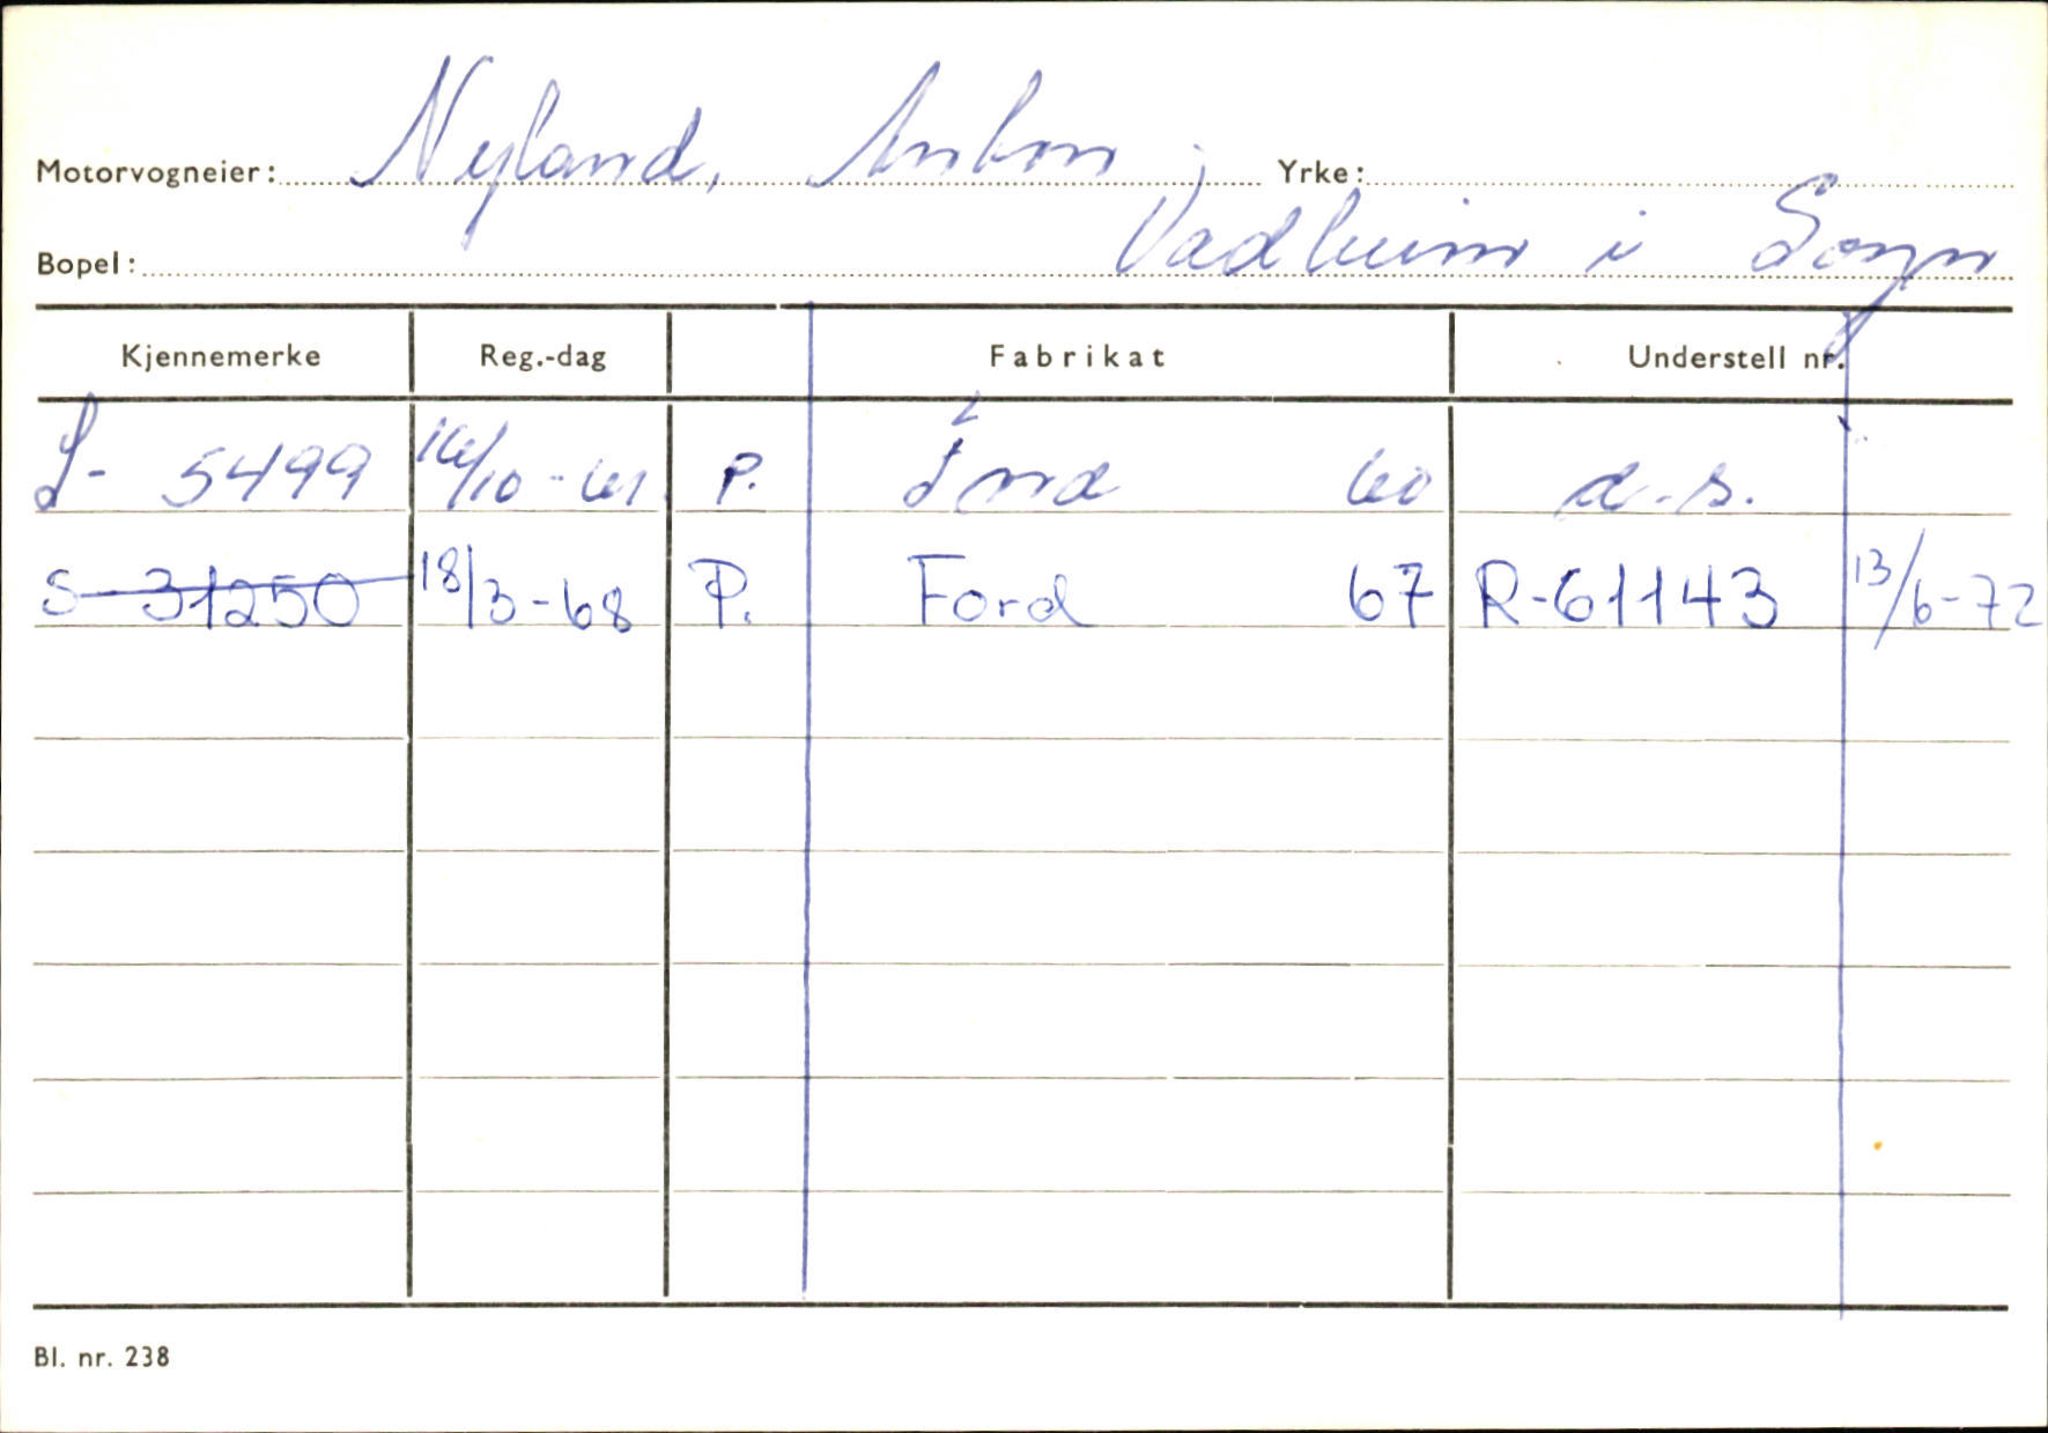 Motorvogneier: Nyland, Anton Yrke:
Bopel: Vadheim i Sogn
Kjennemerke Reg.-dag Fabrikat Understell nr.
S- 5499 16/10-61 P. Ford 60 d.s.
S-31250 18/3-68 P. Ford 67 R-61143 13/6-72
Bl. nr. 238